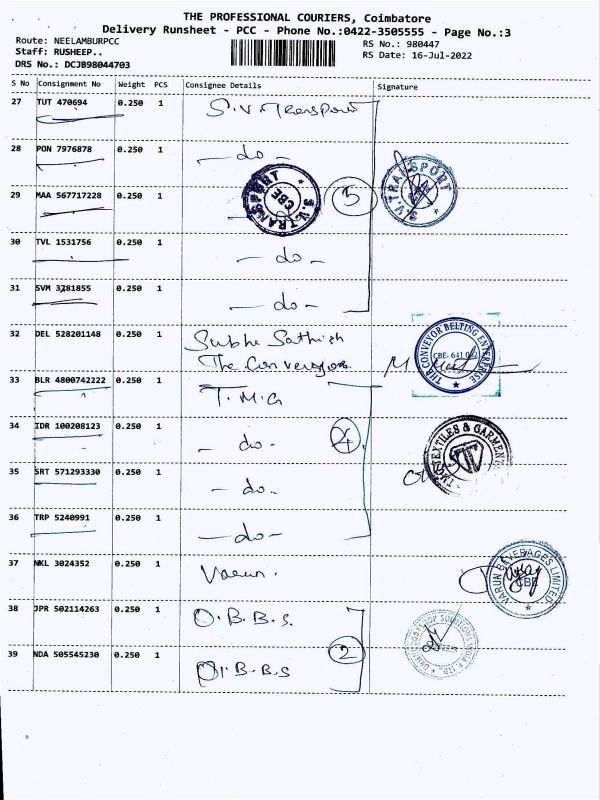 THE PROFESSIONAL COURIERS, Coimbatore
Delivery Runsheet - PCC - Phone No.:0422-3505555 - Page No.:3
Route: NEELAMBURPCC RS No.: 980447
Staff: RUSHEEP.. RS Date: 16-Jul-2022
DRS No.: DCJB98044703
S No Consignment No Weight PCS Consignee Details Signature
27 TUT 470694 0.250 1 S.V. Transport
28 PON 7976878 0.250 1 - do -
S.V.TRANSPORT
29 MAA 567717228 0.250 1
S.V.TRANSPORT CBE
5
30 TVL 1531756 0.250 1 - do -
31 SVM 3781855 0.250 1 - do -
32 DEL 528201148 0.250 1 Subhe Sathish
The Conveyor
THE CONVEYOR BELTING ENTERPRISE
CBE- 641 0
33 BLR 4800742222 0.250 1 T.M.G
34 IDR 100208123 0.250 1 - do -
4
TMG TEXTILES & GARMENT
35 SRT 571293330 0.250 1 - do -
36 TRP 5240991 0.250 1 - do -
37 NKL 3024352 0.250 1 Varun.
VARUN BEVERAGES LIMITED
CBE
38 JPR 502114263 0.250 1 O.B.B.S.
2
39 NDA 505545230 0.250 1 O.B.B.S